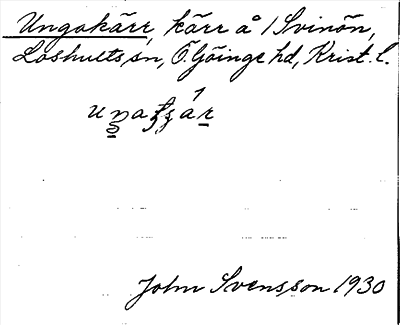 Ungakärr, kärr å / Svinön,
Loshults sn, Ö. Göinge hd, Krist. l.
John Svensson 1930